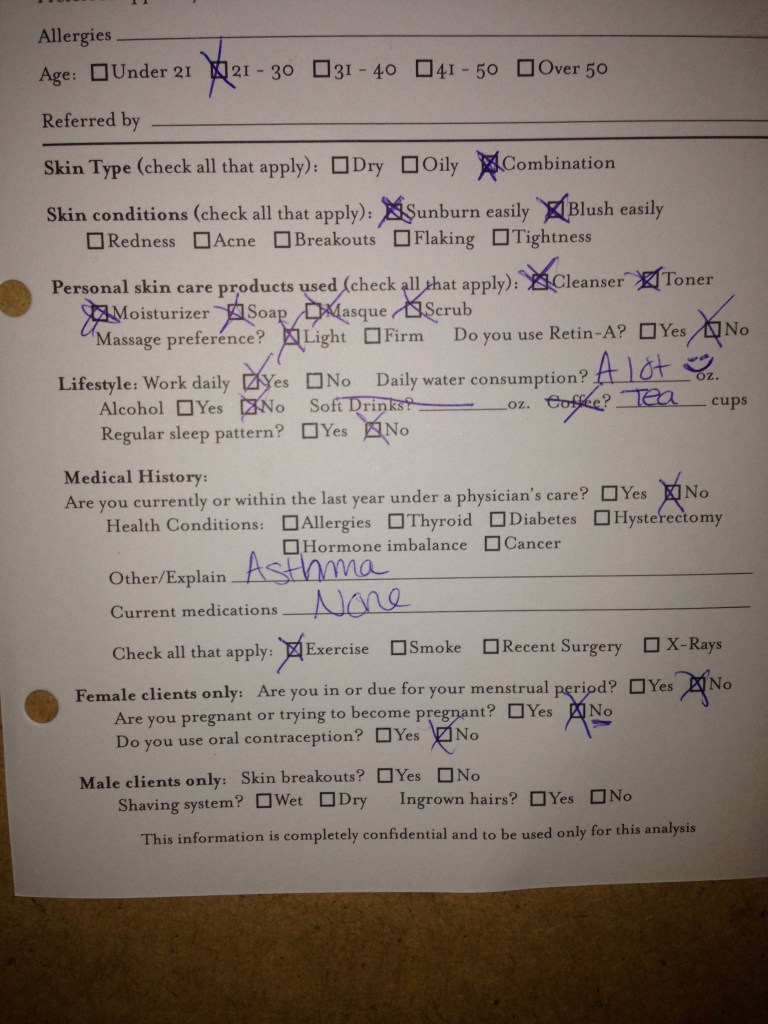 Allergies
Age: ☐ Under 21 ☒ 21 - 30 ☐ 31 - 40 ☐ 41 - 50 ☐ Over 50
Referred by
Skin Type (check all that apply): ☐ Dry ☐ Oily ☒ Combination
Skin conditions (check all that apply): ☒ Sunburn easily ☒ Blush easily
☐ Redness ☐ Acne ☐ Breakouts ☐ Flaking ☐ Tightness
Personal skin care products used (check all that apply): ☒ Cleanser ☒ Toner
☒ Moisturizer ☒ Soap ☒ Masque ☒ Scrub
Massage preference? ☒ Light ☐ Firm Do you use Retin-A? ☐ Yes ☒ No
Lifestyle: Work daily ☒ Yes ☐ No Daily water consumption? A lot oz.
Alcohol ☐ Yes ☒ No Soft Drinks? oz. Coffee? Tea cups
Regular sleep pattern? ☐ Yes ☒ No
Medical History:
Are you currently or within the last year under a physician's care? ☐ Yes ☒ No
Health Conditions: ☐ Allergies ☐ Thyroid ☐ Diabetes ☐ Hysterectomy
☐ Hormone imbalance ☐ Cancer
Other/Explain Asthma
Current medications None
Check all that apply: ☒ Exercise ☐ Smoke ☐ Recent Surgery ☐ X-Rays
Female clients only: Are you in or due for your menstrual period? ☐ Yes ☒ No
Are you pregnant or trying to become pregnant? ☐ Yes ☒ No
Do you use oral contraception? ☐ Yes ☒ No
Male clients only: Skin breakouts? ☐ Yes ☐ No
Shaving system? ☐ Wet ☐ Dry Ingrown hairs? ☐ Yes ☐ No
This information is completely confidential and to be used only for this analysis